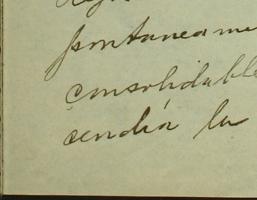 pontaneame
consolidable
cendía la